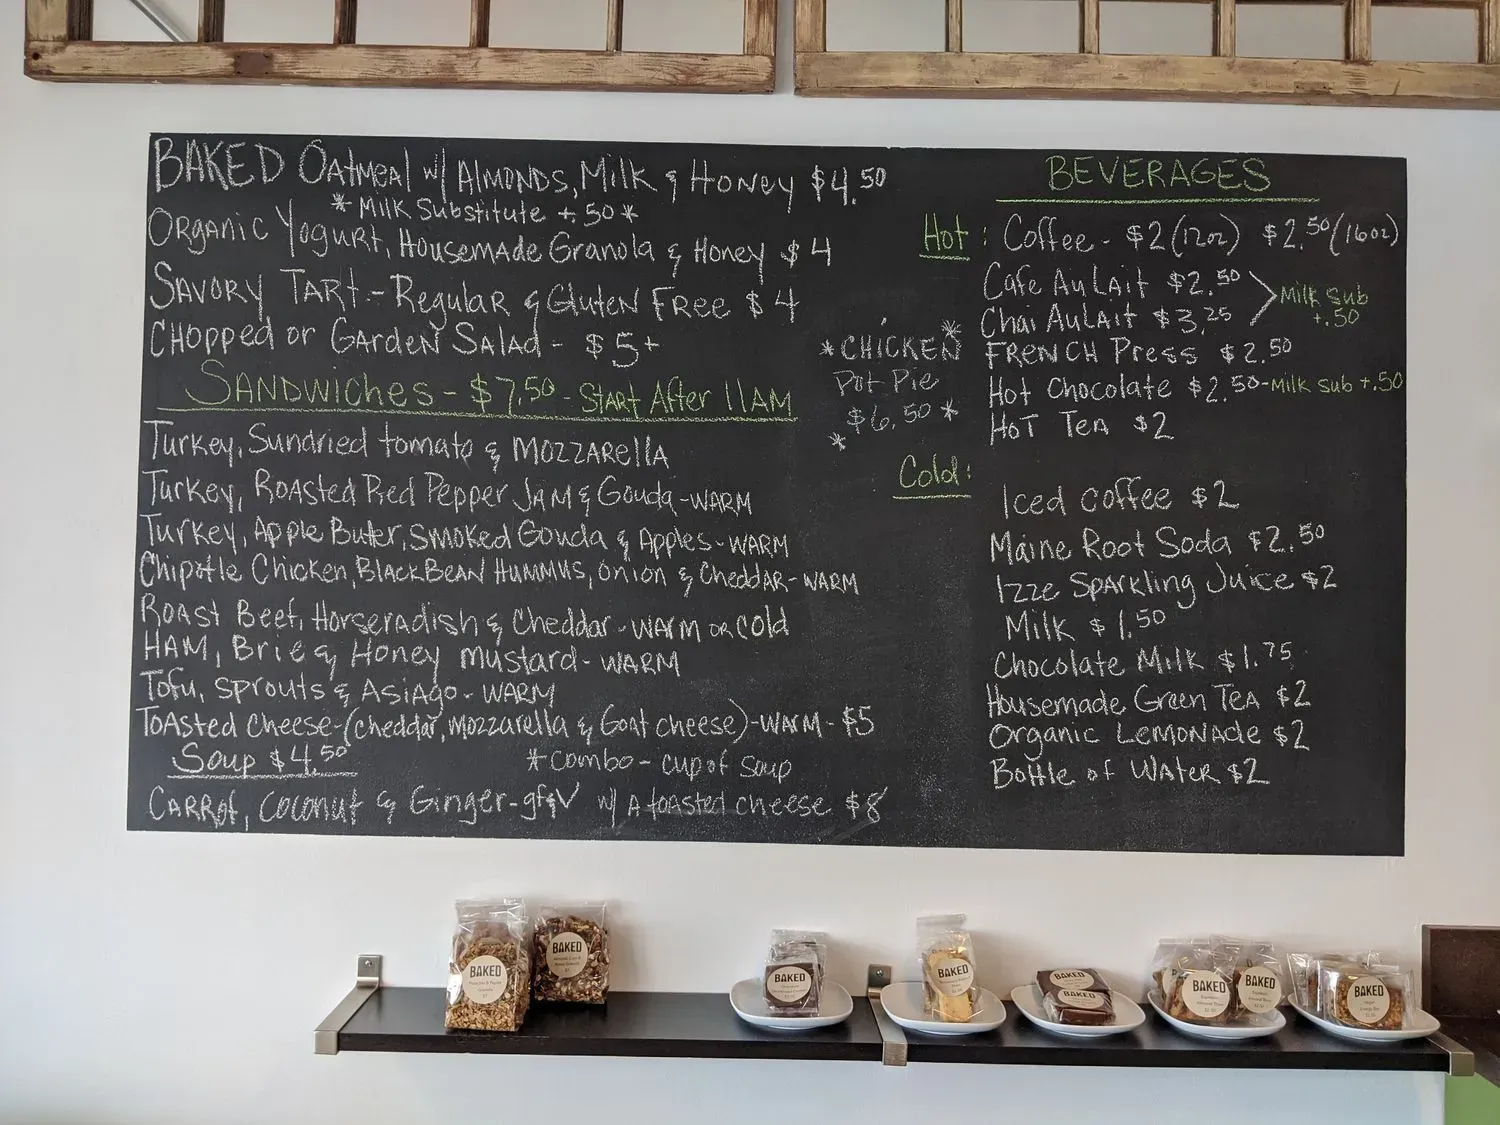 BAKED Oatmeal w/ Almonds, Milk & Honey $4.50
*Milk Substitute +.50*
Organic Yogurt, Housemade Granola & Honey $4
Savory Tart - Regular & Gluten Free $4
Chopped or Garden Salad - $5+
Sandwiches - $7.50 - Start After 11AM
Turkey, Sundried tomato & Mozzarella
Turkey, Roasted Red Pepper Jam & Gouda - WARM
Turkey, Apple Butter, Smoked Gouda & Apples - WARM
Chipotle Chicken, Black Bean Hummus, onion & Cheddar - WARM
Roast Beef, Horseradish & Cheddar - WARM OR cold
HAM, Brie & Honey mustard - WARM
Tofu, Sprouts & Asiago - WARM
Toasted Cheese - (Cheddar, Mozzarella & Goat cheese) - WARM - $5
Soup $4.50
Carrot, coconut & Ginger - gf & V
*combo - cup of soup
w/ A toasted cheese $8
*CHICKEN*
Pot Pie
* $6.50 *
BEVERAGES
Hot: Coffee - $2 (12oz) $2.50 (16oz)
Cafe Au Lait $2.50
Chai Au Lait $3.25
Milk Sub
+.50
FRENCH Press $2.50
Hot Chocolate $2.50 - Milk sub +.50
Hot Tea $2
Cold:
Iced coffee $2
Maine Root Soda $2.50
Izze Sparkling Juice $2
Milk $1.50
Chocolate Milk $1.75
Housemade Green Tea $2
Organic Lemonade $2
Bottle of Water $2
BAKED
BAKED
BAKED
BAKED
BAKED
BAKED
BAKED
BAKED
BAKED